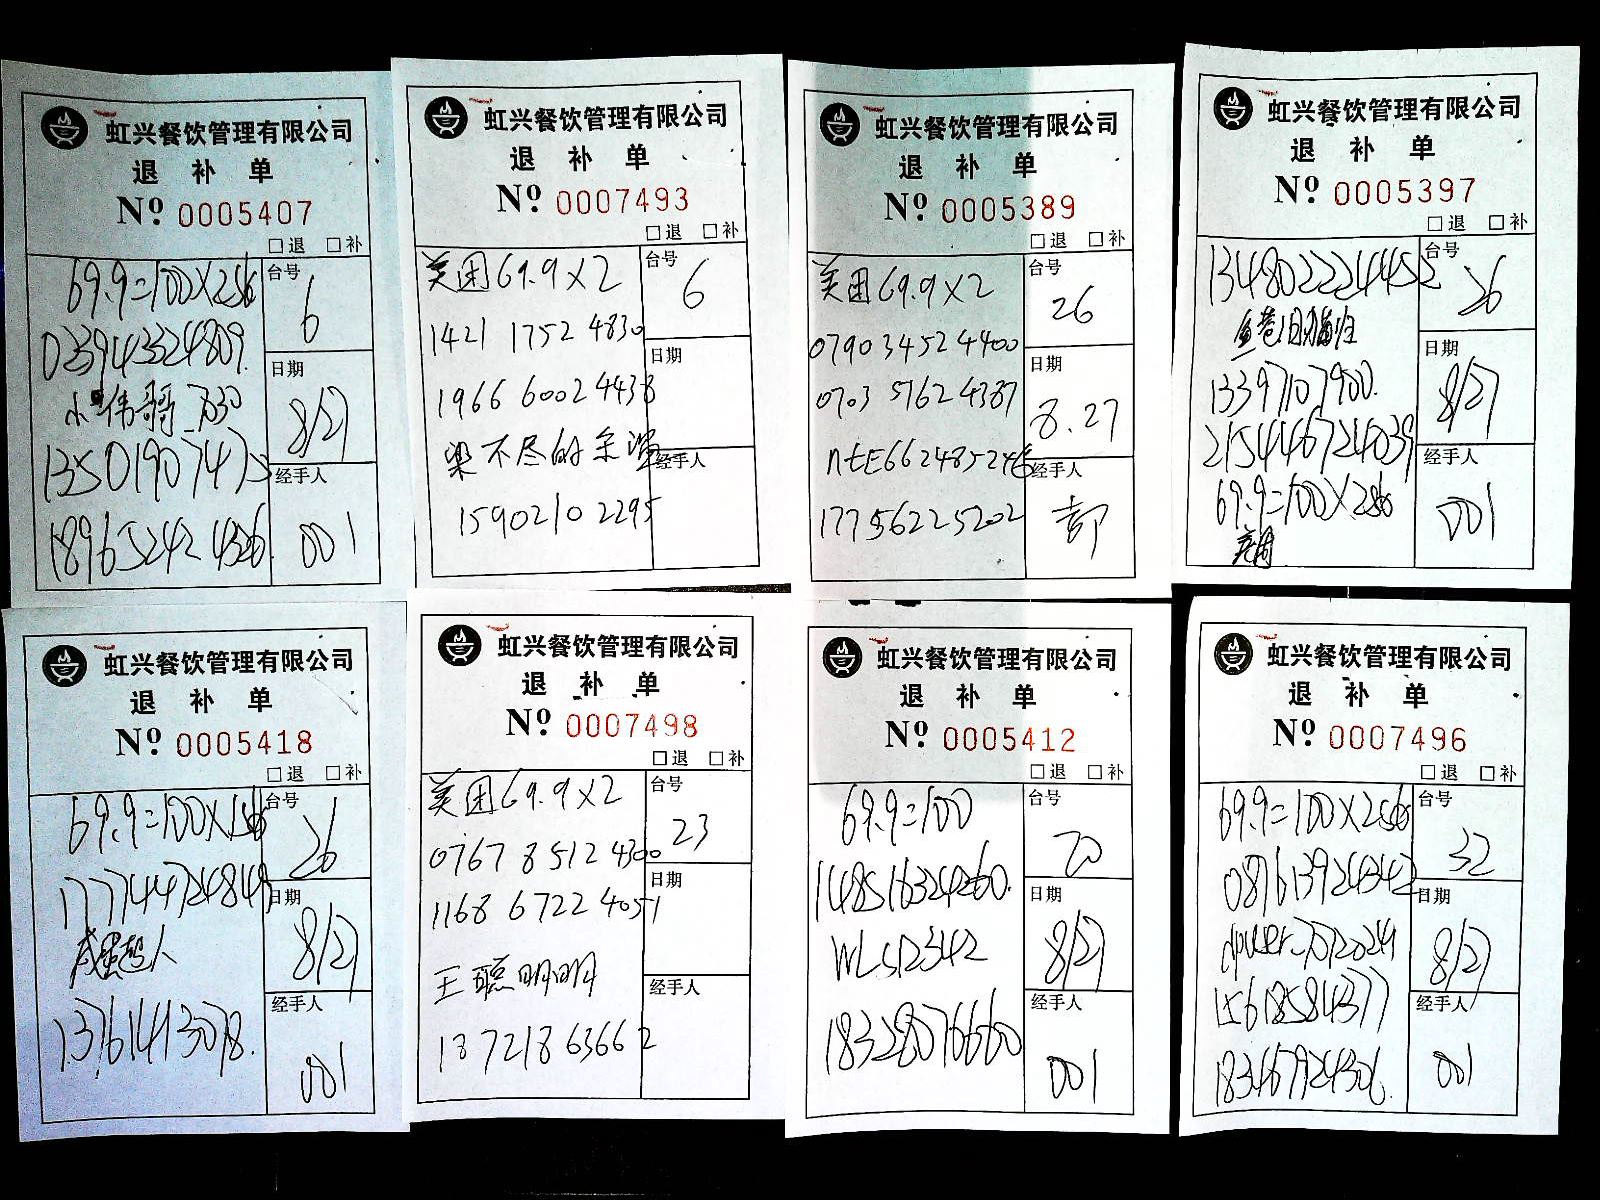 虹兴餐饮管理有限公司
退 补 单
Nº 0005407
□退 □补
69.9=100X2
台号
6
023943324809.
日期
8/27
伟哥 7030
13501907475
经手人
001
189652424326
虹兴餐饮管理有限公司
退 补 单
Nº 0007493
□退 □补
美团69.9X2
台号
6
1421 1752 4830
日期
1966 6002 4438
梁不尽的余温
经手人
15902102295
虹兴餐饮管理有限公司
退 补 单
Nº 0005389
□退 □补
美团69.9X2
台号
26
0790 3452 4400
日期
0703 5762 4387
8.27
ntE662485246
经手人
17756225202
虹兴餐饮管理有限公司
退 补 单
Nº 0005397
□退 □补
134802224452
台号
26
日期
13397107900.
8/27
215446724039
经手人
69.9=100X2
001
美团
虹兴餐饮管理有限公司
退 补 单
Nº 0005418
□退 □补
69.9=100X1
台号
26
177744724849
日期
8/27
咸蛋超人
经手人
13761413078.
001
虹兴餐饮管理有限公司
退 补 单
Nº 0007498
□退 □补
美团69.9X2
台号
23
0767 8512 4300
日期
1168 6722 4051
王聪明明
经手人
18721863662
虹兴餐饮管理有限公司
退 补 单
Nº 0005412
□退 □补
69.9=100
台号
20
148516324260.
日期
WLS12342
8/27
经手人
18328076660
001
虹兴餐饮管理有限公司
退 补 单
Nº 0007496
□退 □补
69.9=100X2
台号
32
087613924342
日期
8/27
15618584377
经手人
183467924306.
001